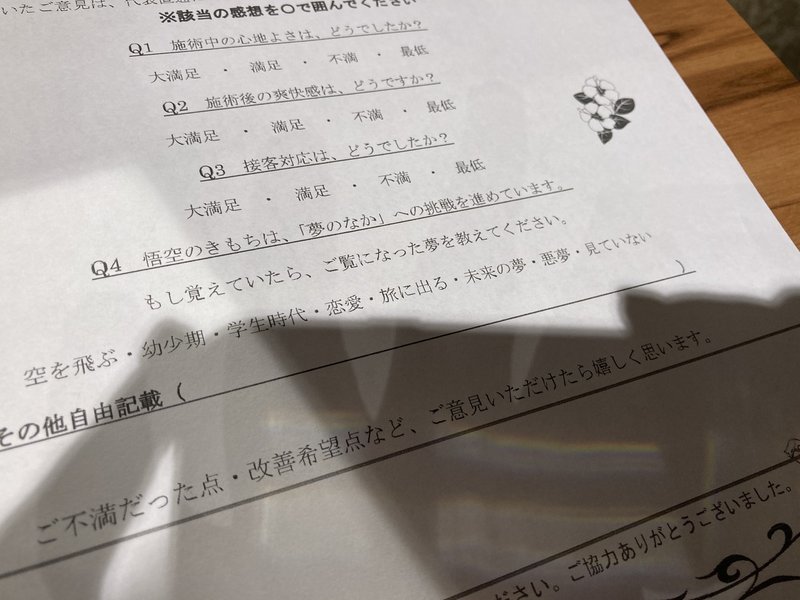 いたご意見は、代表直通
※該当の感想を○で囲んでください
Q1 施術中の心地よさは、どうでしたか?
大満足 ・ 満足 ・ 不満 ・ 最低
Q2 施術後の爽快感は、どうですか?
大満足 ・ 満足 ・ 不満 ・ 最低
Q3 接客対応は、どうでしたか?
大満足 ・ 満足 ・ 不満 ・ 最低
Q4 悟空のきもちは、「夢のなか」への挑戦を進めています。
もし覚えていたら、ご覧になった夢を教えてください。
空を飛ぶ・幼少期・学生時代・恋愛・旅に出る・未来の夢・悪夢・見ていない
その他自由記載 ( )
ご不満だった点・改善希望点など、ご意見いただけたら嬉しく思います。
ださい。ご協力ありがとうございました。